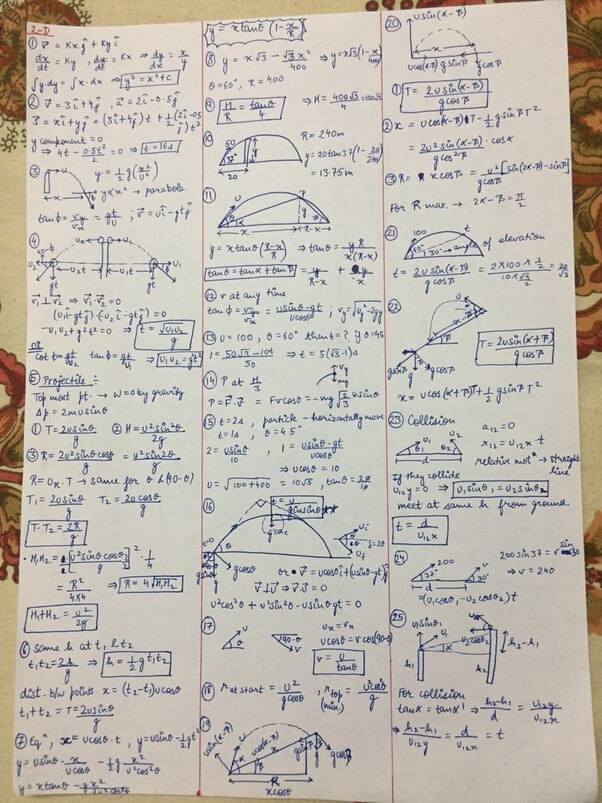 2-D
① v⃗ = Kxĵ + Kyî
dx/dt = Ky , dy/dt = Kx ⇒ dy/dx = x/y
∫y dy = ∫x·dx ⇒ y² = x² + C
② v⃗ = 3î + 4ĵ , a⃗ = 2î - 0.5ĵ
y component = 0
⇒ 4t - 0.5t²/2 = 0 ⇒ t = 16s
③ y = ½ g(x²/u²)
y ∝ x² → parabola
tanϕ = vy/vx = gt/u ; v⃗ = uî - gtĵ
④
v⃗₁ ⊥ v⃗₂ ⇒ v⃗₁·v⃗₂ = 0
(u₁î - gtĵ)·(-u₂î - gtĵ) = 0
-u₁u₂ + g²t² = 0 ⇒ t = √(u₁u₂)/g
OR
cotϕ = gt/u₂ tanϕ = gt/u₁ ⇒ u₁u₂ = gt²
⑤ Projectile :
Top most pt. → W = 0 by gravity
Δp = 2mu sinθ
① T = 2u sinθ/g ② H = u² sin²θ/2g
③ R = 2u² sinθ cosθ/g = u² sin2θ/g
R = Ux·T → same for θ & (90-θ)
T₁ = 2u sinθ/g T₂ = 2u cosθ/g
T·T₂ = 2R/g
H₁H₂ = [u² sinθ cosθ/g]² · 1/4
= R²/4×4 ⇒ R = 4√H₁H₂
H₁ + H₂ = u²/2g
⑥ same h at t₁ & t₂
t₁t₂ = 2h/g ⇒ h = ½ g t₁t₂
dist. b/w points x = (t₂-t₁)u cosθ
t₁ + t₂ = T = 2u sinθ/g
⑦ Eqⁿ, x = u cosθ·t , y = u sinθ t - ½ gt²
y = u sinθ · x/u cosθ - ½ g x²/u² cos²θ
y = x tanθ - gx²/2u² cos²θ
y = x tanθ (1 - x/R)
⑧ y = x√3 - √3x²/400 ⇒ y = x√3(1 - x/400)
θ = 60°, R = 400
⑨ H/R = tanθ/4 ⇒ H = 400√3/4 = 100√3
⑩ R = 240m
50
37°
20
y = 20 tan37 (1 - 20/240)
= 13.75 m
⑪
y = x tanθ (R-x/R) ⇒ tanθ = yR/x(R-x)
tanθ = tanα + tanβ = y/R-x + y/x
⑫ v at any time
tanϕ = vy/vx = u sinθ - gt/u cosθ ; vy = √uy² - 2gy
⑬ u = 100, θ = 60° then t = ? if θ = 45
1 = 50√3 - 10t/50 ⇒ t = 5(√3-1)s
⑭ P at H/3
P = F⃗·v⃗ = Fv cosθ = -mg √(2/3) u sinθ
⑮ t = 2s, particle → horizontally move
t = 1s, θ = 45°
2 = u sinθ/10 , 1 = u sinθ - gt/u cosθ
⇒ u cosθ = 10
u = √100+400 = 10√5
⑯
g cosθ
or v⃗ = u cosθî + (u sinθ - gt)ĵ
v⃗ ⊥ u⃗ ⇒ v⃗·u⃗ = 0
u² cos²θ + u² sin²θ - u sinθ gt = 0
⑰ ux = vx
u cosθ = v cos(90-θ)
v = u/tanθ
⑱ r at start = u²/g cosθ , r top (min.) = u² cos²θ/g
⑲
u sin(α-β)
u cos(α-β)
g sinβ
g cosβ
R
x cosθ
⑳ u sin(α-β)
x
u cos(α-β) g sinβ g cosβ
① T = 2u sin(α-β)/g cosβ
② x = u cos(α-β)T - ½ g sinβ T²
= 2u² sin(α-β)/g cos²β · cosα
③ R = x cosβ = u²/g cosβ [sin(2α-β) - sinβ]
For R max. → 2α - β = π/2
㉑ 100
30° → angle of elevation
t = 2u sin(α-β)/g cosβ = 2×100×½/10×√3/2 = 20/√3
㉒
T = 2u sin(α+β)/g cosβ
g sinβ g cosβ
x = u cos(α+β)T + ½ g sinβ T²
㉓ Collision
a₁₂ = 0
r₁₂ = U₁₂x·t
relative motⁿ → straight line
If they collide
U₁₂y = 0 ⇒ U₁ sinθ₁ = U₂ sinθ₂
meet at same h from ground.
t = d/U₁₂x
㉔ 200 37° 30° d
200 sin37 = v sin30
⇒ v = 240
= (u₁ cosθ₁ - u₂ cosθ₂)t
㉕ u₁ sinθ₁
u₂ cosθ₂
h₁ h₂ h₂-h₁
For collision
tanα = tanα' ⇒ h₂-h₁/d = U₁₂y/U₁₂x
⇒ h₂-h₁/U₁₂y = d/U₁₂x = t